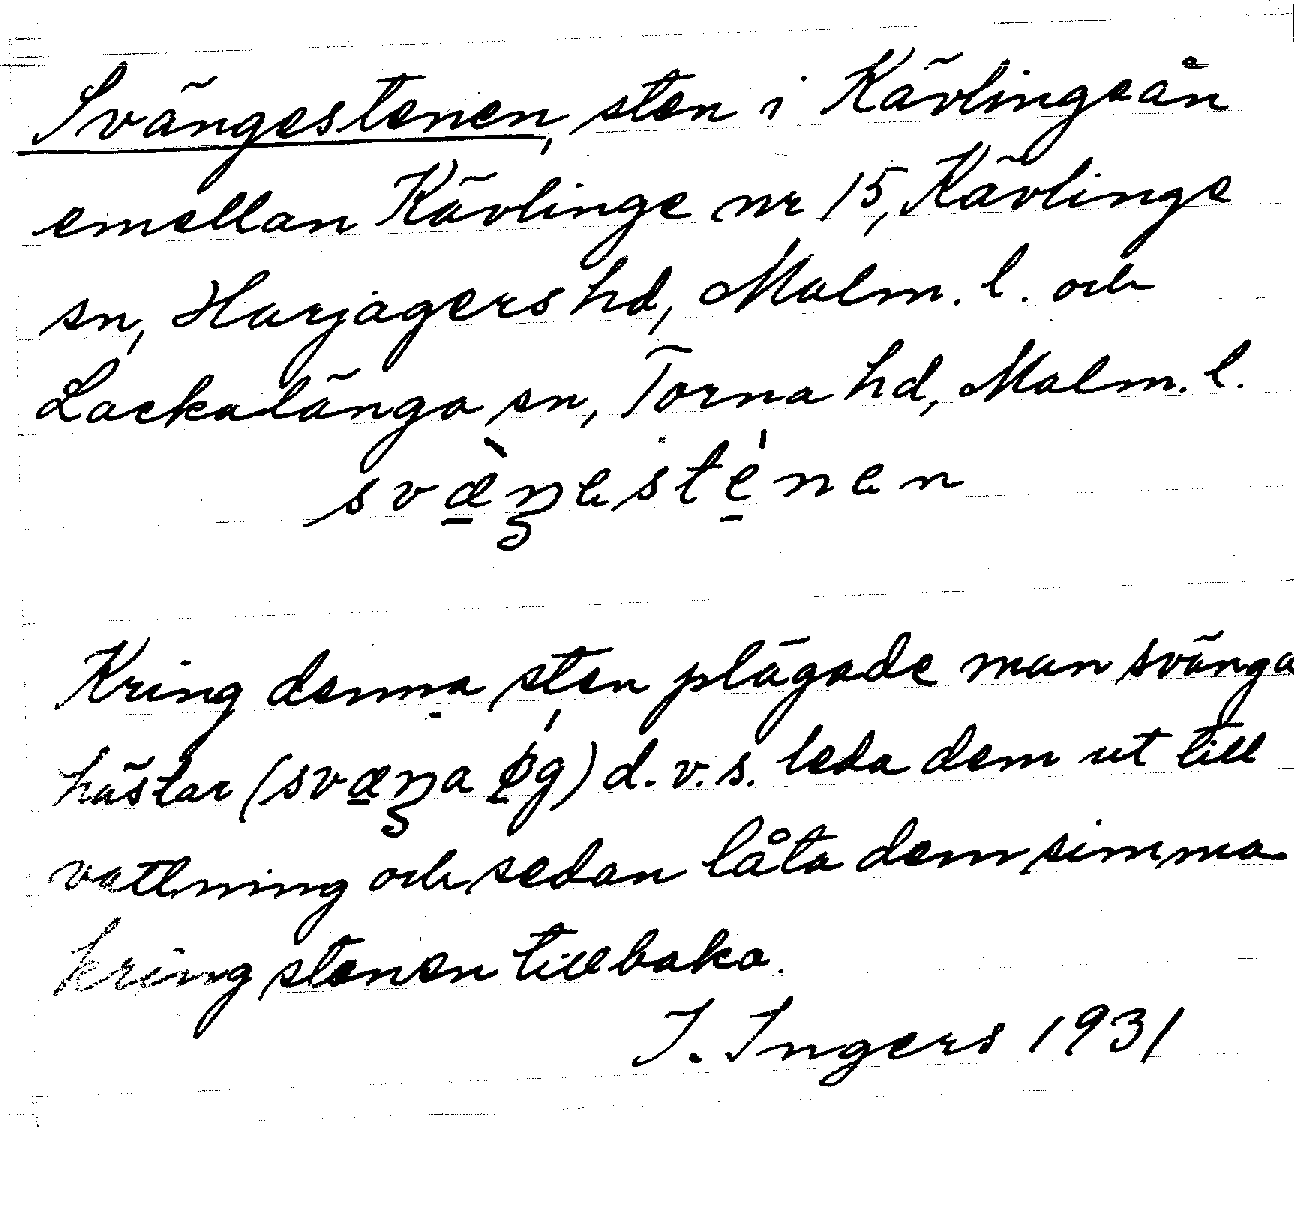 Svängestenen, sten i Kävlingeån
emellan Kävlinge nr 15, Kävlinge
sn, Harjagers hd, Malm. l. och
Lackalänga sn, Torna hd, Malm. l.
svæ̠̀ŋestè̠nen
Kring denna sten plägade man svänga
hästar (svæ̠ŋa ø̠g) d.v.s. leda dem ut till
vattning och sedan låta dem simma
kring stenen tillbaka.
I. Ingers 1931